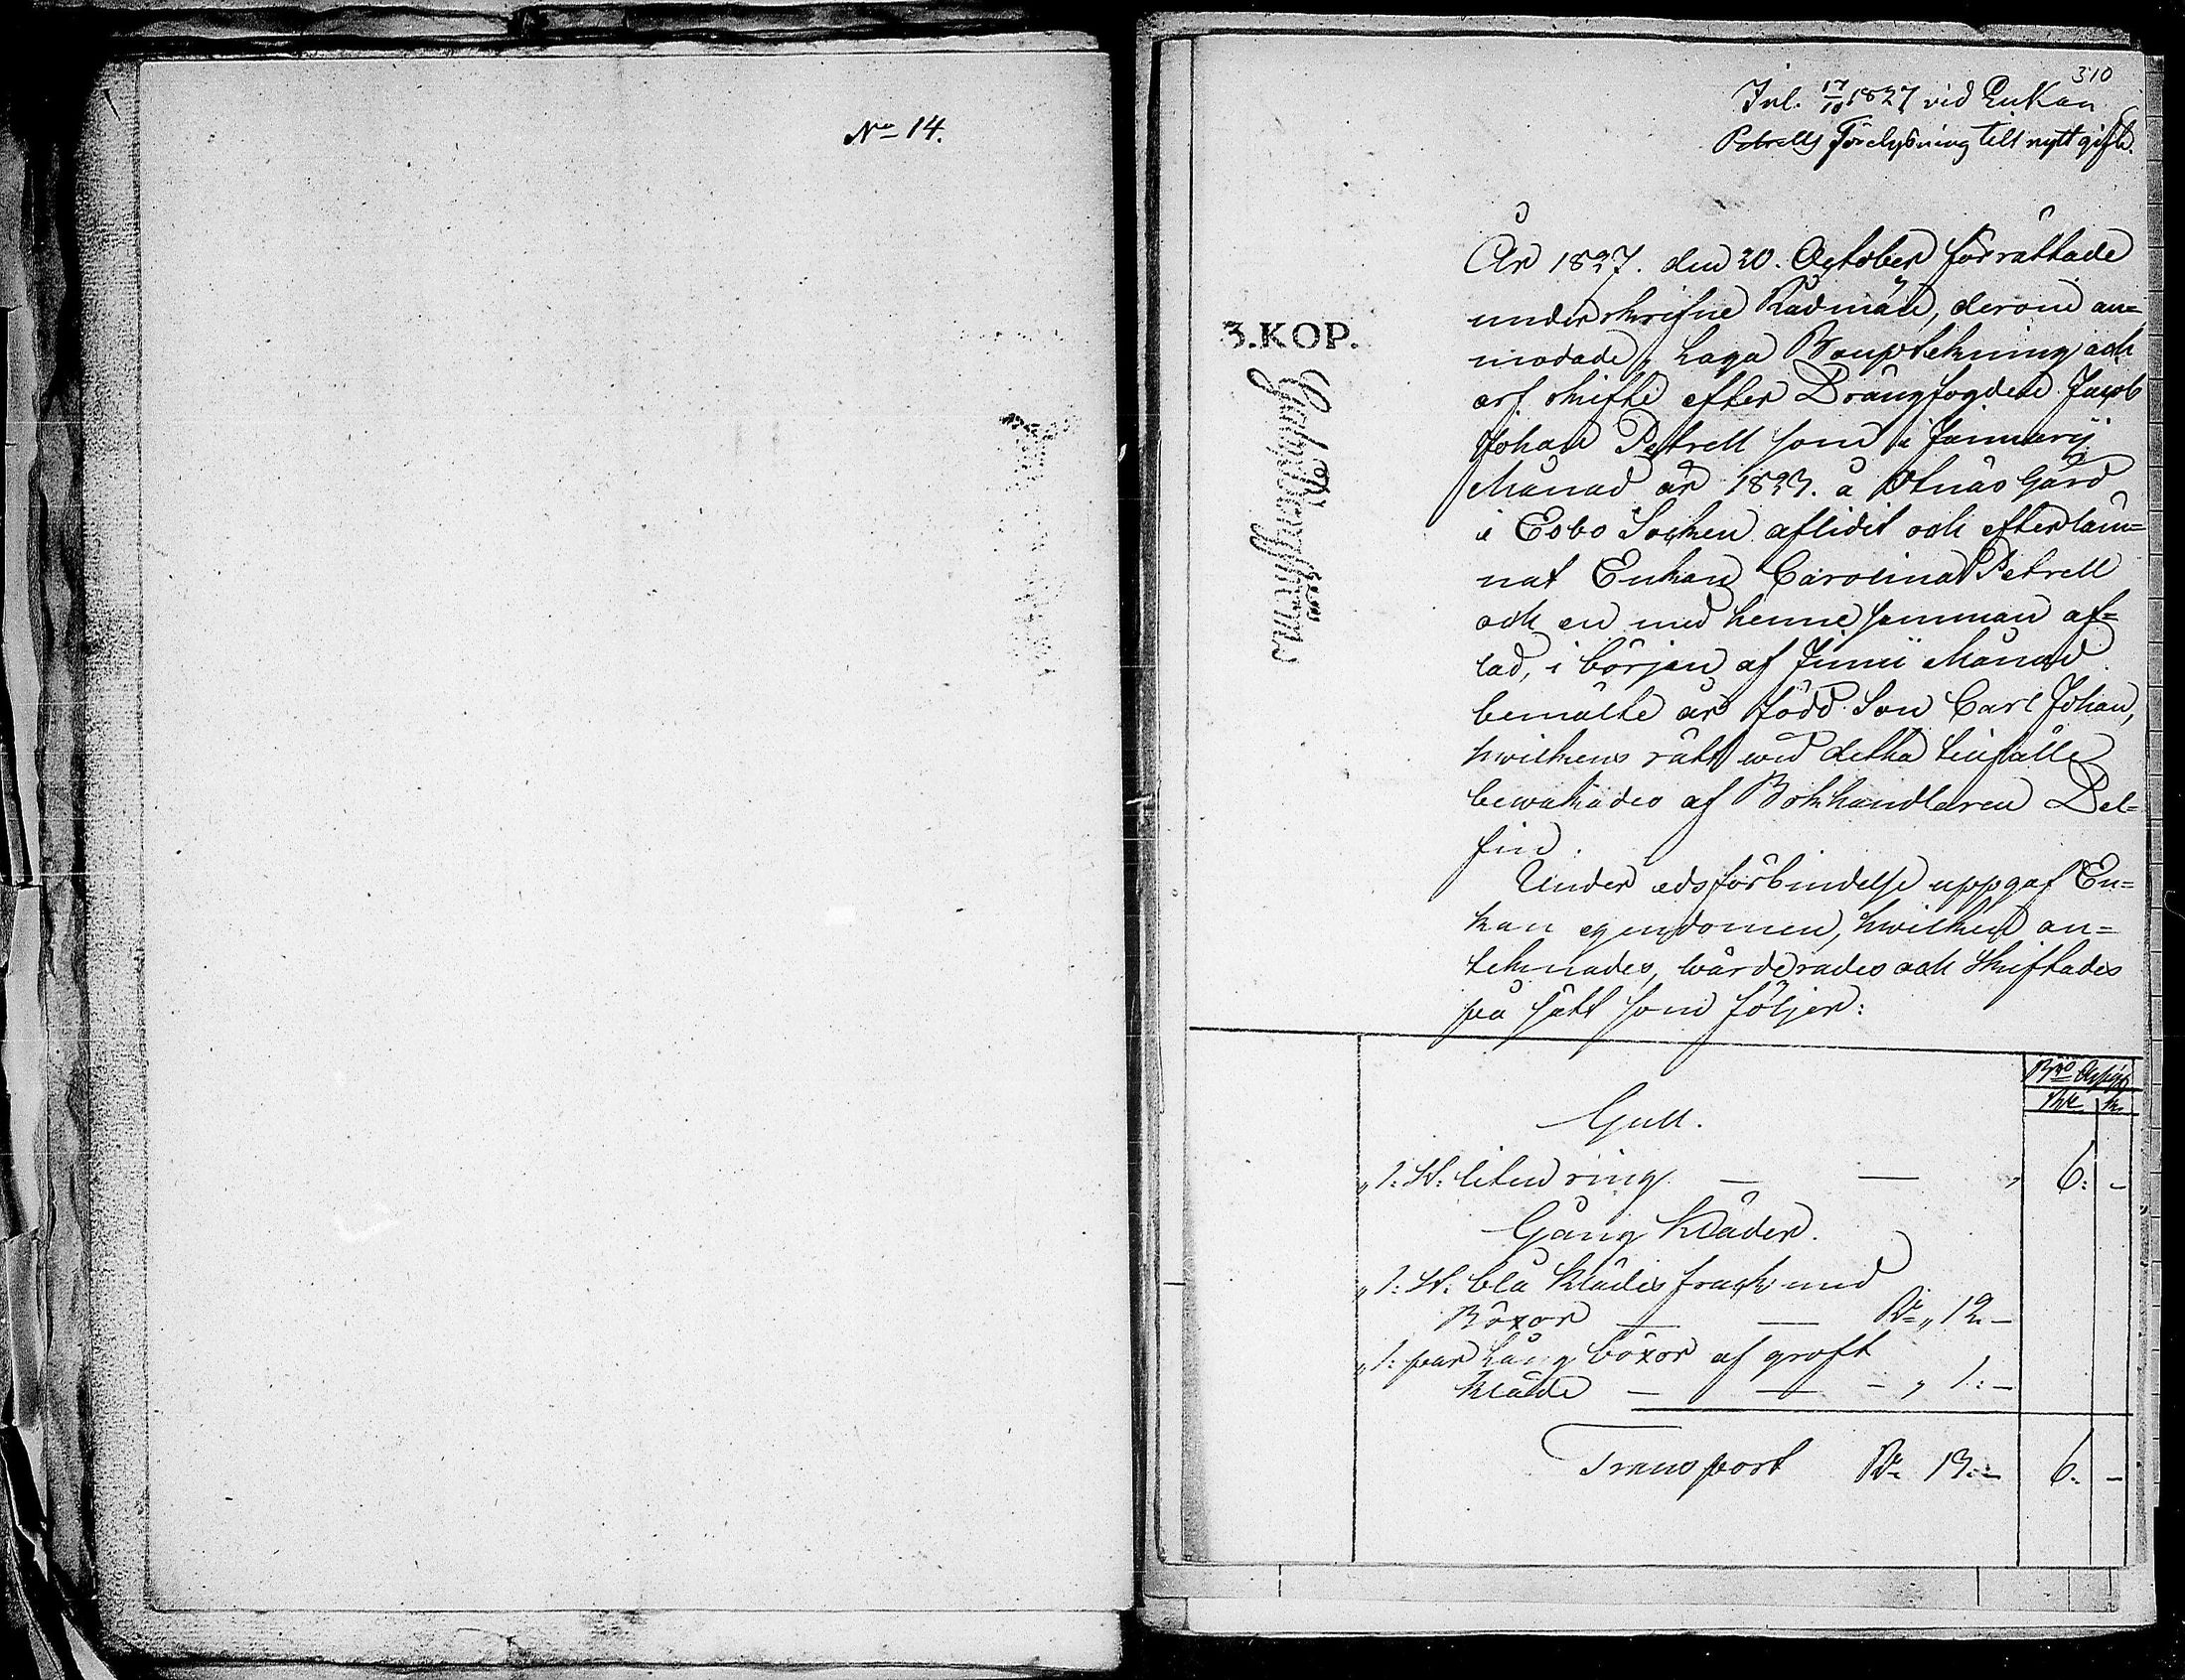 No 14.
310
Inl. 17/10 1827 vid Enkan
Petrells Förelysning till nytt gifte.
År 1827. den 20. October förrättade
underskrifne Rådmän, derom an=
modade, laga Bouptekning och
arfskifte efter Drängfogden Jacob
Johan Petrell som i Januarij
Månad år 1823. å Otnäs Gård
i Esbo Socken aflidit och efterläm=
nat Enkan Carolina Petrell
och en med henne samman af=
lad, i början af Junii Månad
bemälte år född Son Carl Johan,
hvilkens rätt wid detta tillfälle
bewakades af Bokhandlaren Del=
fin.
Under edsförbindelse uppgaf En=
kan egendomen, hwilken an=
teknades, wärderades och skiftades
på sätt som följer:
3.KOP.
Bco Assign
Rbl. k.
Gull.
„1: st: liten ring — — „ 6: –
Gång Kläder.
„1: st: blå klädes frack med
Böxor — — Rbl „ 12 –
„1: par lång böxor af groft
kläde — — – „ 1: –
Transport Rbl 13:– 6. –